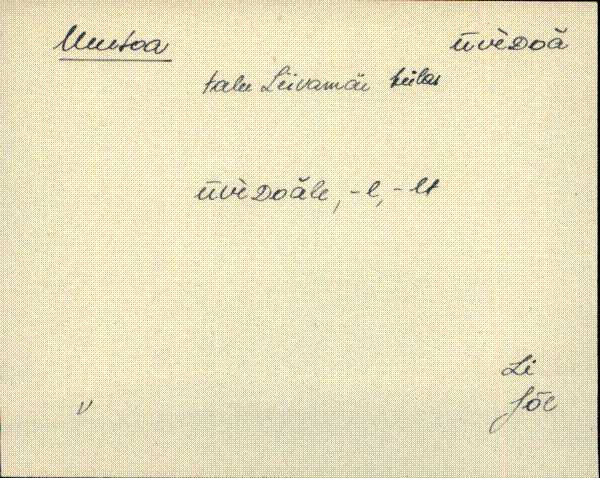 Uuetoa ūvèDoă
talu Liivamäe külas
ūvèDoăle, -l, -lt
Li
Jõe
v